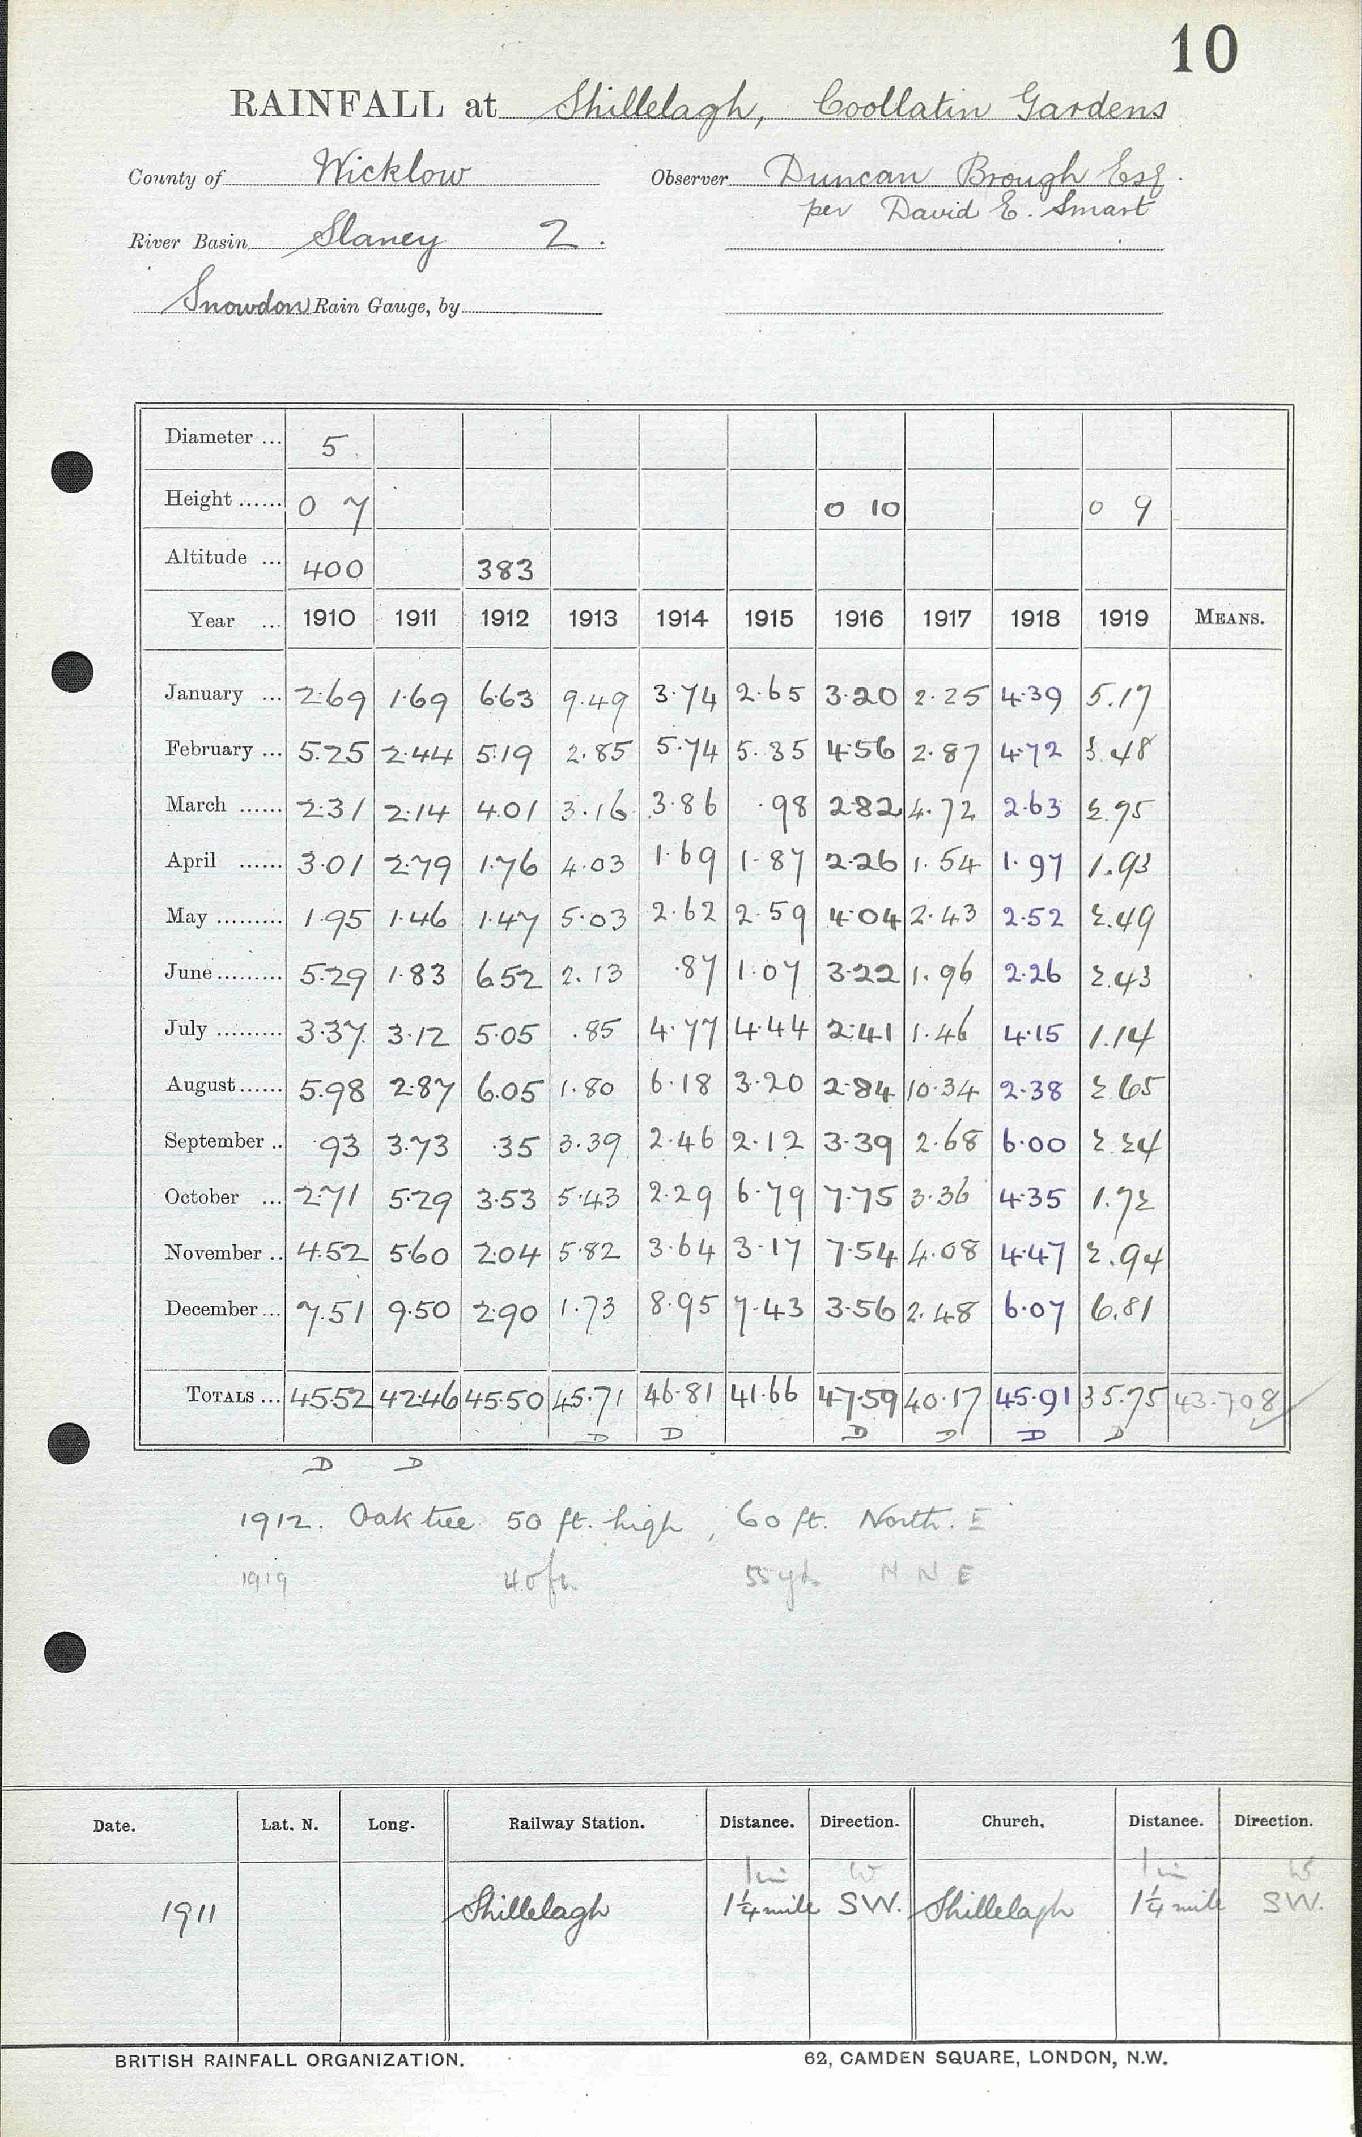 10
RAINFALL at Shillelagh, Coollatin Gardens
County of Wicklow Observer Duncan Brough Esq.
per David E. Smart
River Basin Slaney 2.
Snowdon Rain Gauge, by
Diameter ... 5
Height ...... 0 7 0 10 0 9
Altitude ... 400 383
Year ... 1910 1911 1912 1913 1914 1915 1916 1917 1918 1919 MEANS.
January ... 2.69 1.69 6.63 9.49 3.74 2.65 3.20 2.25 4.39 5.17
February ... 5.25 2.44 5.19 2.85 5.74 5.35 4.56 2.87 4.72 3.48
March ...... 2.31 2.14 4.01 3.16 3.86 .98 2.82 4.72 2.63 2.95
April ...... 3.01 2.79 1.76 4.03 1.69 1.87 2.26 1.54 1.97 1.93
May ......... 1.95 1.46 1.47 5.03 2.62 2.59 4.04 2.43 2.52 2.49
June ......... 5.29 1.83 6.52 2.13 .87 1.07 3.22 1.96 2.26 2.43
July ......... 3.37 3.12 5.05 .85 4.77 4.44 2.41 1.46 4.15 1.14
August ...... 5.98 2.87 6.05 1.80 6.18 3.20 2.84 10.34 2.38 2.65
September .. .93 3.73 .35 3.39 2.46 2.12 3.39 2.68 6.00 2.24
October ... 2.71 5.29 3.53 5.43 2.29 6.79 7.75 3.36 4.35 1.72
November .. 4.52 5.60 2.04 5.82 3.64 3.17 7.54 4.08 4.47 2.94
December ... 7.51 9.50 2.90 1.73 8.95 7.43 3.56 2.48 6.07 6.81
TOTALS ... 45.52 42.46 45.50 45.71 46.81 41.66 47.59 40.17 45.91 35.75 43.708
D D D D D D
D D
1912. Oak tree 50 ft. high, 60 ft. North. E
1919 40 ft. 55 yds N N E
Date. Lat. N. Long. Railway Station. Distance. Direction. Church. Distance. Direction.
1 mi W 1 mi W
1911 Shillelagh 1¼ mile SW. Shillelagh 1¼ mile SW.
BRITISH RAINFALL ORGANIZATION. 62, CAMDEN SQUARE, LONDON, N.W.